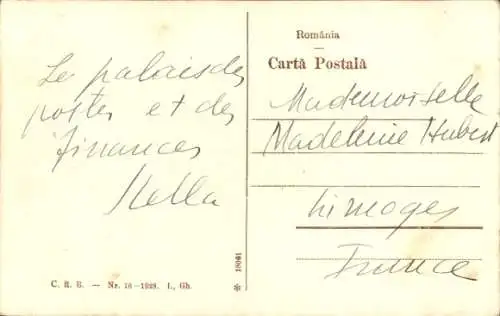 România
Cartă Postală
Le palais des
postes et des
finances
Stella
Mademoiselle
Madeleine Hubert
Limoges
France
18061
C. R. B. — Nr. 18—1928. I., Gh.